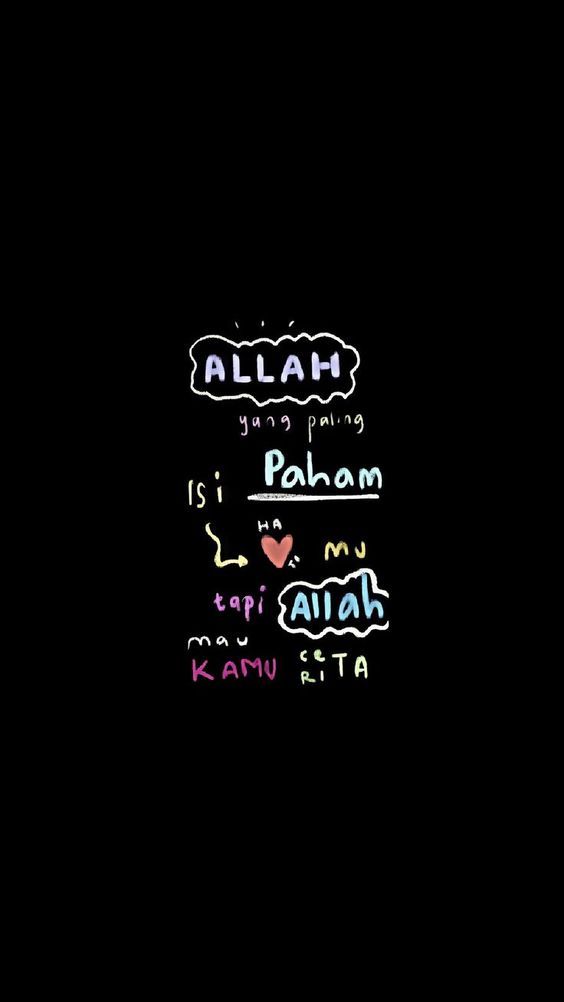 ALLAH
yang paling
Isi Paham
HA
TI
mu
tapi Allah
mau
KAMU ceRITA